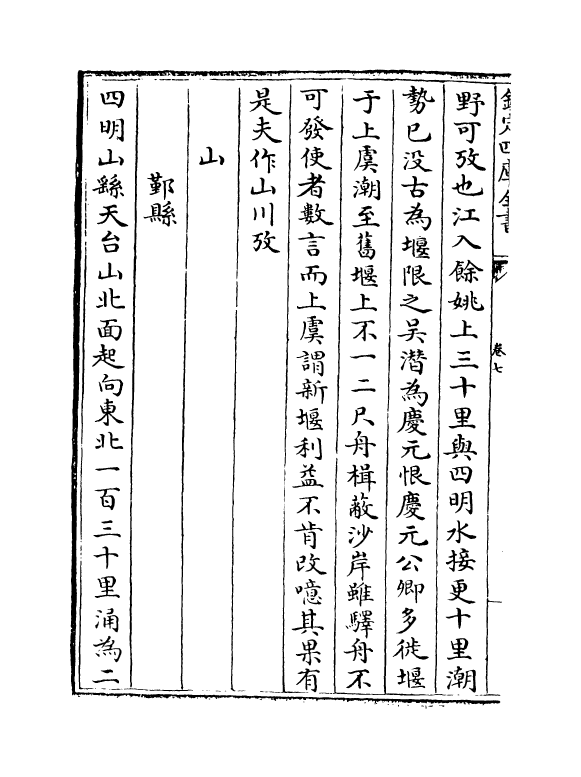 欽定四庫全書
卷七
野可攷也江入餘姚上三十里與四明水接更十里潮
勢已没古為堰限之吴潛為慶元恨慶元公卿多徙堰
于上虞潮至舊堰上不一二尺舟楫蔽沙岸雖驛舟不
可發使者數言而上虞謂新堰利益不肯改噫其果有
是夫作山川攷
山
鄞縣
四明山繇天台山北面起向東北一百三十里涌為二